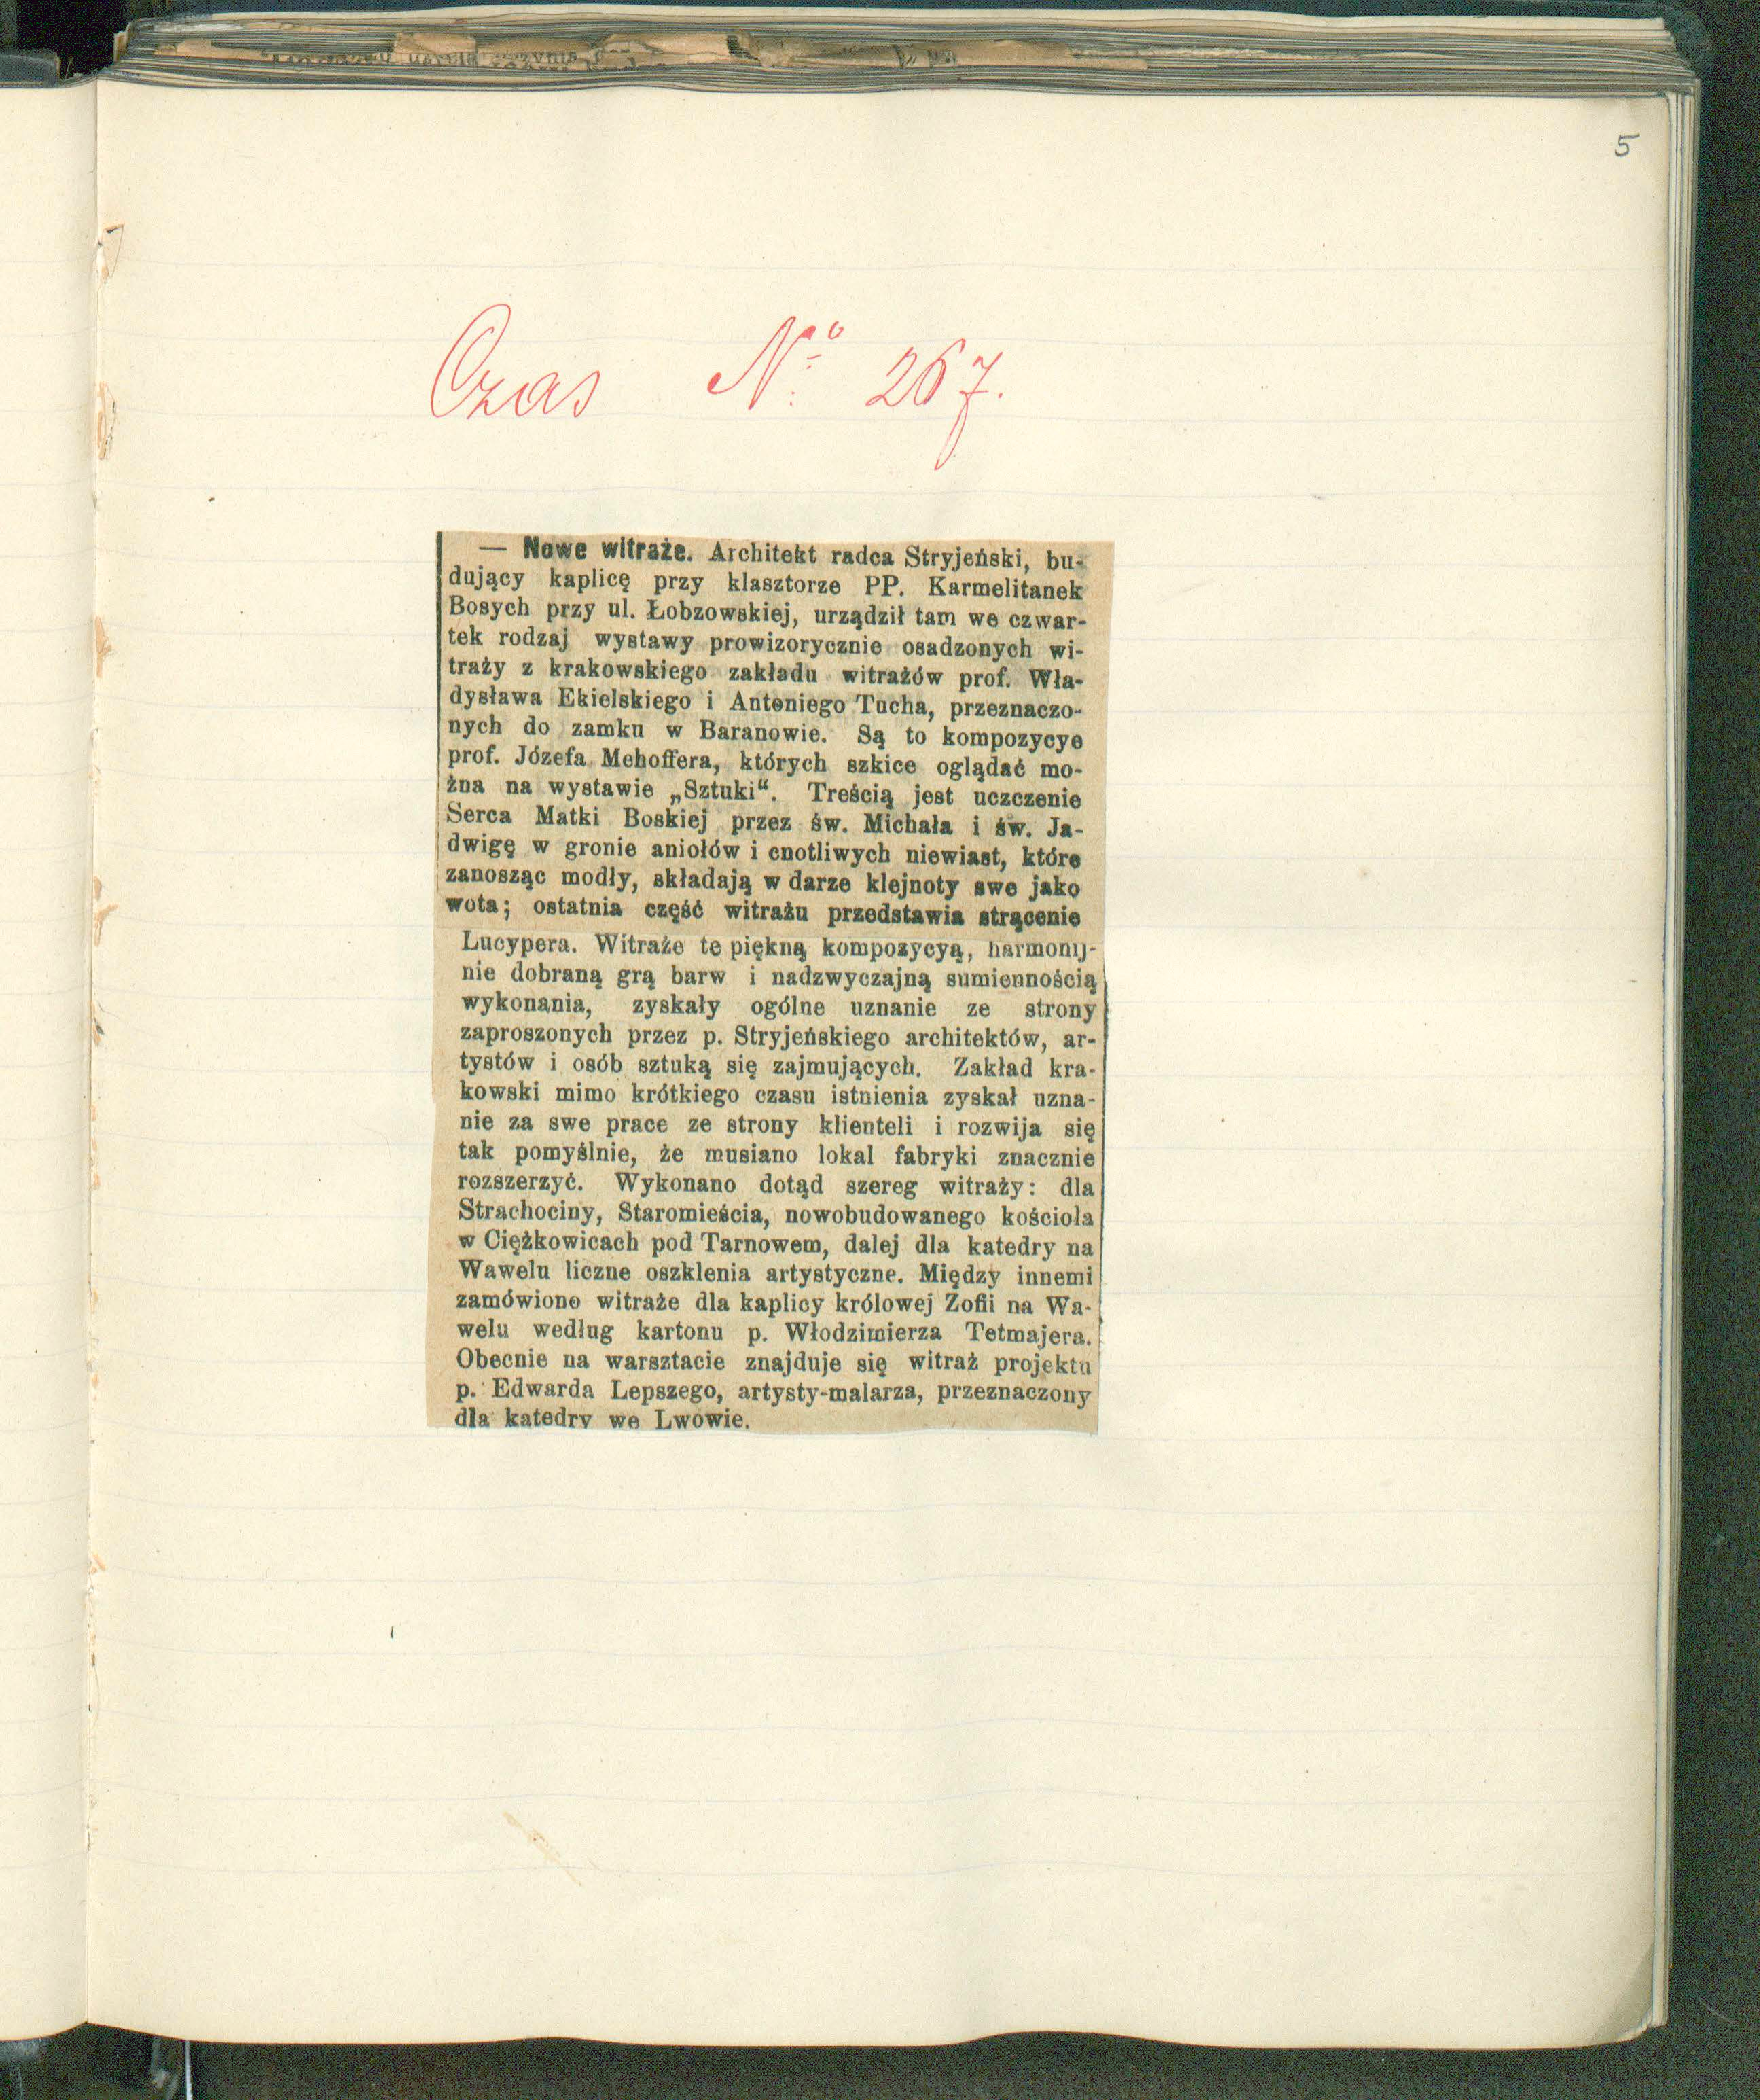 5
Czas No 267.
— Nowe witraże. Architekt radca Stryjeński, bu-
dujący kaplicę przy klasztorze PP. Karmelitanek
Bosych przy ul. Łobzowskiej, urządził tam we czwar-
tek rodzaj wystawy prowizorycznie osadzonych wi-
traży z krakowskiego zakładu witrażów prof. Wła-
dysława Ekielskiego i Antoniego Tucha, przeznaczo-
nych do zamku w Baranowie. Są to kompozycye
prof. Józefa Mehoffera, których szkice oglądać mo-
żna na wystawie „Sztuki“. Treścią jest uczczenie
Serca Matki Boskiej przez św. Michała i św. Ja-
dwigę w gronie aniołów i cnotliwych niewiast, które
zanosząc modły, składają w darze klejnoty swe jako
wota; ostatnia część witrażu przedstawia strącenie
Lucypera. Witraże te piękną kompozycyą, harmonij-
nie dobraną grą barw i nadzwyczajną sumiennością
wykonania, zyskały ogólne uznanie ze strony
zaproszonych przez p. Stryjeńskiego architektów, ar-
tystów i osób sztuką się zajmujących. Zakład kra-
kowski mimo krótkiego czasu istnienia zyskał uzna-
nie za swe prace ze strony klienteli i rozwija się
tak pomyślnie, że musiano lokal fabryki znacznie
rozszerzyć. Wykonano dotąd szereg witraży: dla
Strachociny, Staromieścia, nowobudowanego kościoła
w Ciężkowicach pod Tarnowem, dalej dla katedry na
Wawelu liczne oszklenia artystyczne. Między innemi
zamówiono witraże dla kaplicy królowej Zofii na Wa-
welu według kartonu p. Włodzimierza Tetmajera.
Obecnie na warsztacie znajduje się witraż projektu
p. Edwarda Lepszego, artysty-malarza, przeznaczony
dla katedry we Lwowie.